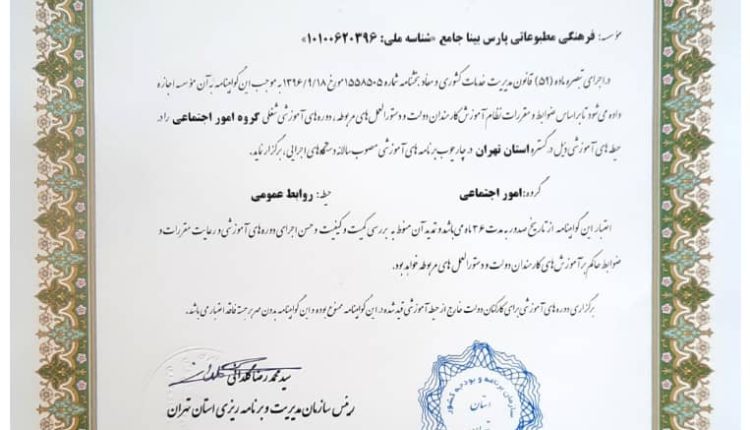 مؤسسه: فرهنگی مطبوعاتی پارس بینا جامع «شناسه ملی: ۱۰۱۰۰۶۲۰۳۹۶»
در اجرای تبصره ماده (۵۹) قانون مدیریت خدمات کشوری و مفاد بخشنامه شماره ۱۵۵۸۵۰۵ مورخ ۱۳۹۶/۹/۱۸ به موجب این گواهینامه به آن مؤسسه اجازه
داده می‌شود تا براساس ضوابط و مقررات نظام آموزش کارمندان دولت و دستورالعمل‌های مربوطه، دوره‌های آموزشی شغلی گروه امور اجتماعی را در
حیطه‌های آموزشی ذیل در گستره استان تهران در چارچوب برنامه‌های آموزشی مصوب سالانه دستگاه‌های اجرایی، برگزار نماید.
گروه: امور اجتماعی حیطه: روابط عمومی
اعتبار این گواهینامه از تاریخ صدور به مدت ۳۶ ماه می‌باشد و تمدید آن منوط به بررسی کمیت و کیفیت و حسن اجرای دوره‌های آموزشی و رعایت مقررات و
ضوابط حاکم بر آموزش‌های کارمندان دولت و دستورالعمل‌های مربوطه خواهد بود.
برگزاری دوره‌های آموزشی برای کارکنان دولت خارج از حیطه آموزشی قید شده در این گواهینامه ممنوع بوده و این گواهینامه بدون مهر برجسته فاقد اعتبار می‌باشد.
سید محمدرضا گلدانی
رئیس سازمان مدیریت و برنامه ریزی استان تهران
سازمان برنامه و بودجه کشور
استان
تهران